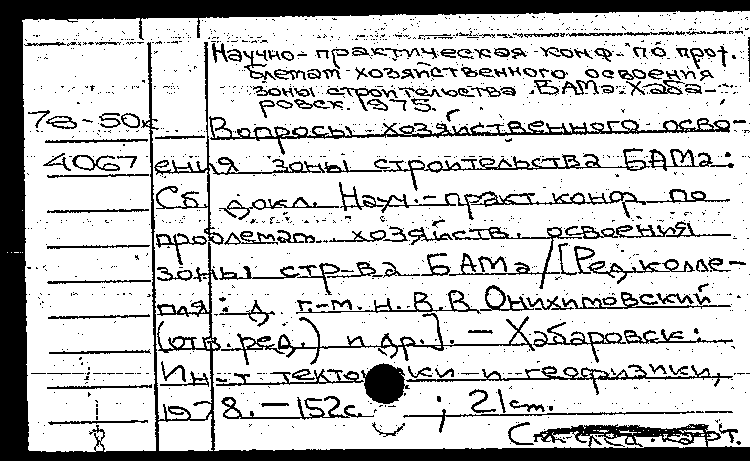 Научно-практическая конф. по проб-
лемам хозяйственного освоения
зоны строительства БАМа. Хаба-
ровск. 1975.
78-50к
Вопросы хозяйственного осво-
4067 ения зоны строительства БАМа:
Сб. докл. Науч.-практ. конф. по
проблемам хозяйств. освоения
зоны стр-ва БАМа / [Ред. колле-
гия: д. г.-м. н. В. В. Онихимовский
(отв. ред.) и др.]. – Хабаровск:
Ин-т тектоники и геофизики,
1978. – 152с. ; 21см.
См. след. карт.